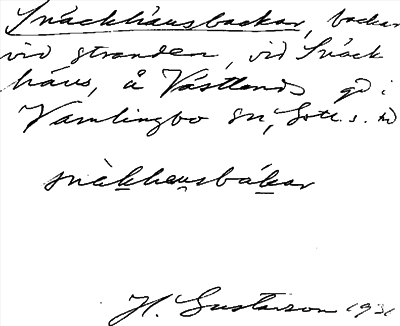 Snäckhäusbackar, backar
vid stranden, vid Snäck
häus, å Västlands gd i
Vamlingbo sn, Gotl. s. hd
snäkhausbákar
H. Gustavson 1931